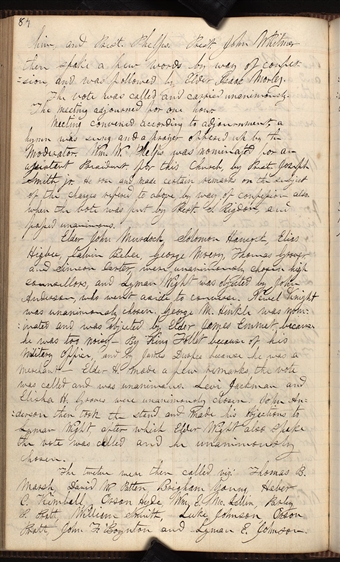 84
him, and Prest. Phelps. Prest John Whitmer
then spoke a few words by way of confes-
sion, and was followed by Elder Isaac Morley.
The vote was called and carried unanimously.
The meeting adjourned for one hour
Meeting convened according to adjournment a
hymn was sung and a prayer offered up by the
Moderator. Wm W. Phelps was nominated for an
assistant President for this Church, by Prest. Joseph
Smith jr. He rose and made certain remarks on the subject
of the charges refered to above by way of confession also
when the vote was put by Prest S. Rigdon, and
passed unanimous.
Elder John Murdock, Solomon Hancock, Elias
Higbee, Calvin Bebee, George Morey, Thomas Grover
and Simeon Carter, were unanimously chosen high
counsellors, and Lyman Wight was objected by John
Anderson, who went aside to converse. Newel Knight
was unanimously chosen George M. Hinkle was nomi-
nated and was objected by Elder James Emmet because
he was too noisy. By King Follet because of his
Military office, and by James Dunlap because he was a
merchant Elder H. made a few remarks the vote
was called and was unanimous. Levi Jackman and
Elisha H. Groves were unanimously chosen. John An-
derson then took the stand and made his objections to
Lyman Wight after which Elder Wight also spoke
the vote was called and he unanimously
chosen.
The twelve were then called viz: Thomas B.
Marsh, David W. Patten, Brigham Young, Heber
C. Kimball, Orson Hyde, Wm. E. McLellin, Parley
P. Pratt, William Smith, Luke Johnson, Orson
Pratt, John F. Boynton and Lyman E. Johnson.